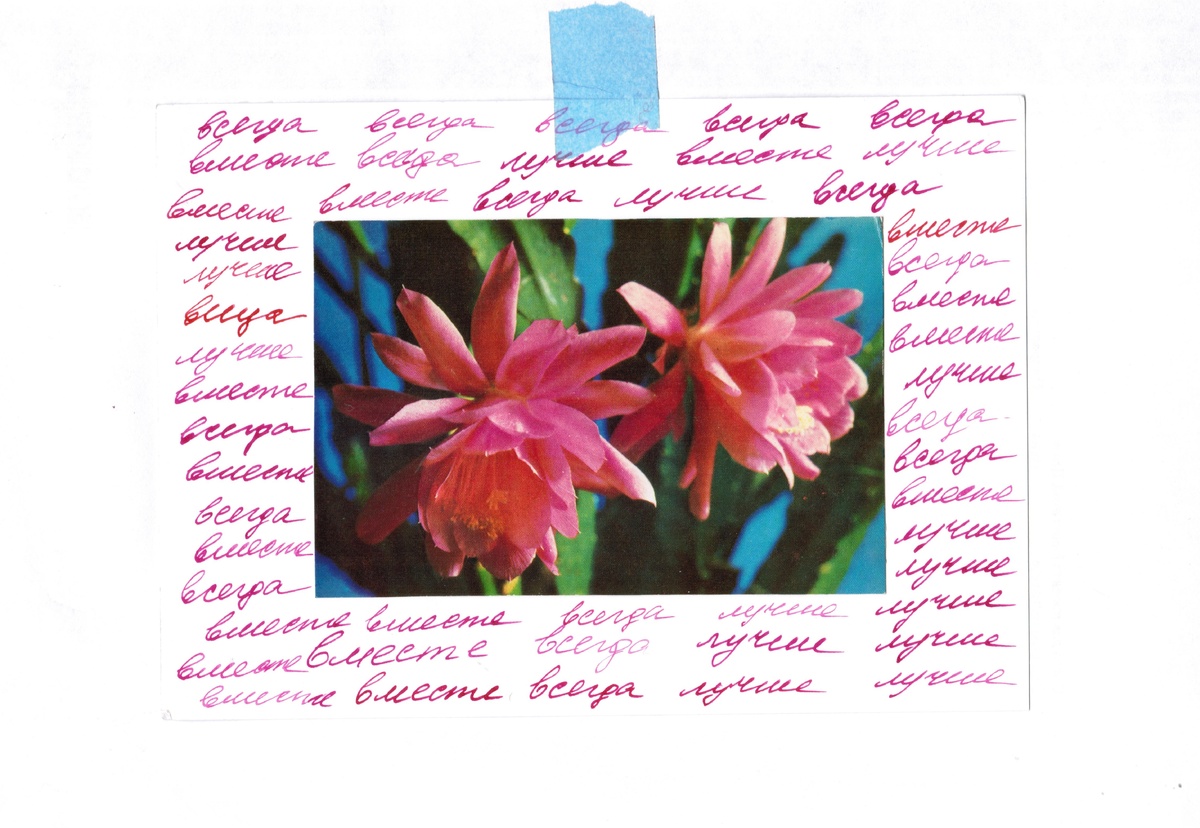 всегда всегда всегда всегда всегда
вместе всегда лучше вместе лучше
вместе вместе всегда лучше всегда
лучше
лучше
лучше
вместе
всегда
вместе
всегда
вместе
всегда
вместе
всегда
вместе
вместе
лучше
всегда
всегда
вместе
лучше
лучше
вместе вместе всегда лучше лучше
вместе вместе всегда лучше лучше
вместе вместе всегда лучше лучше